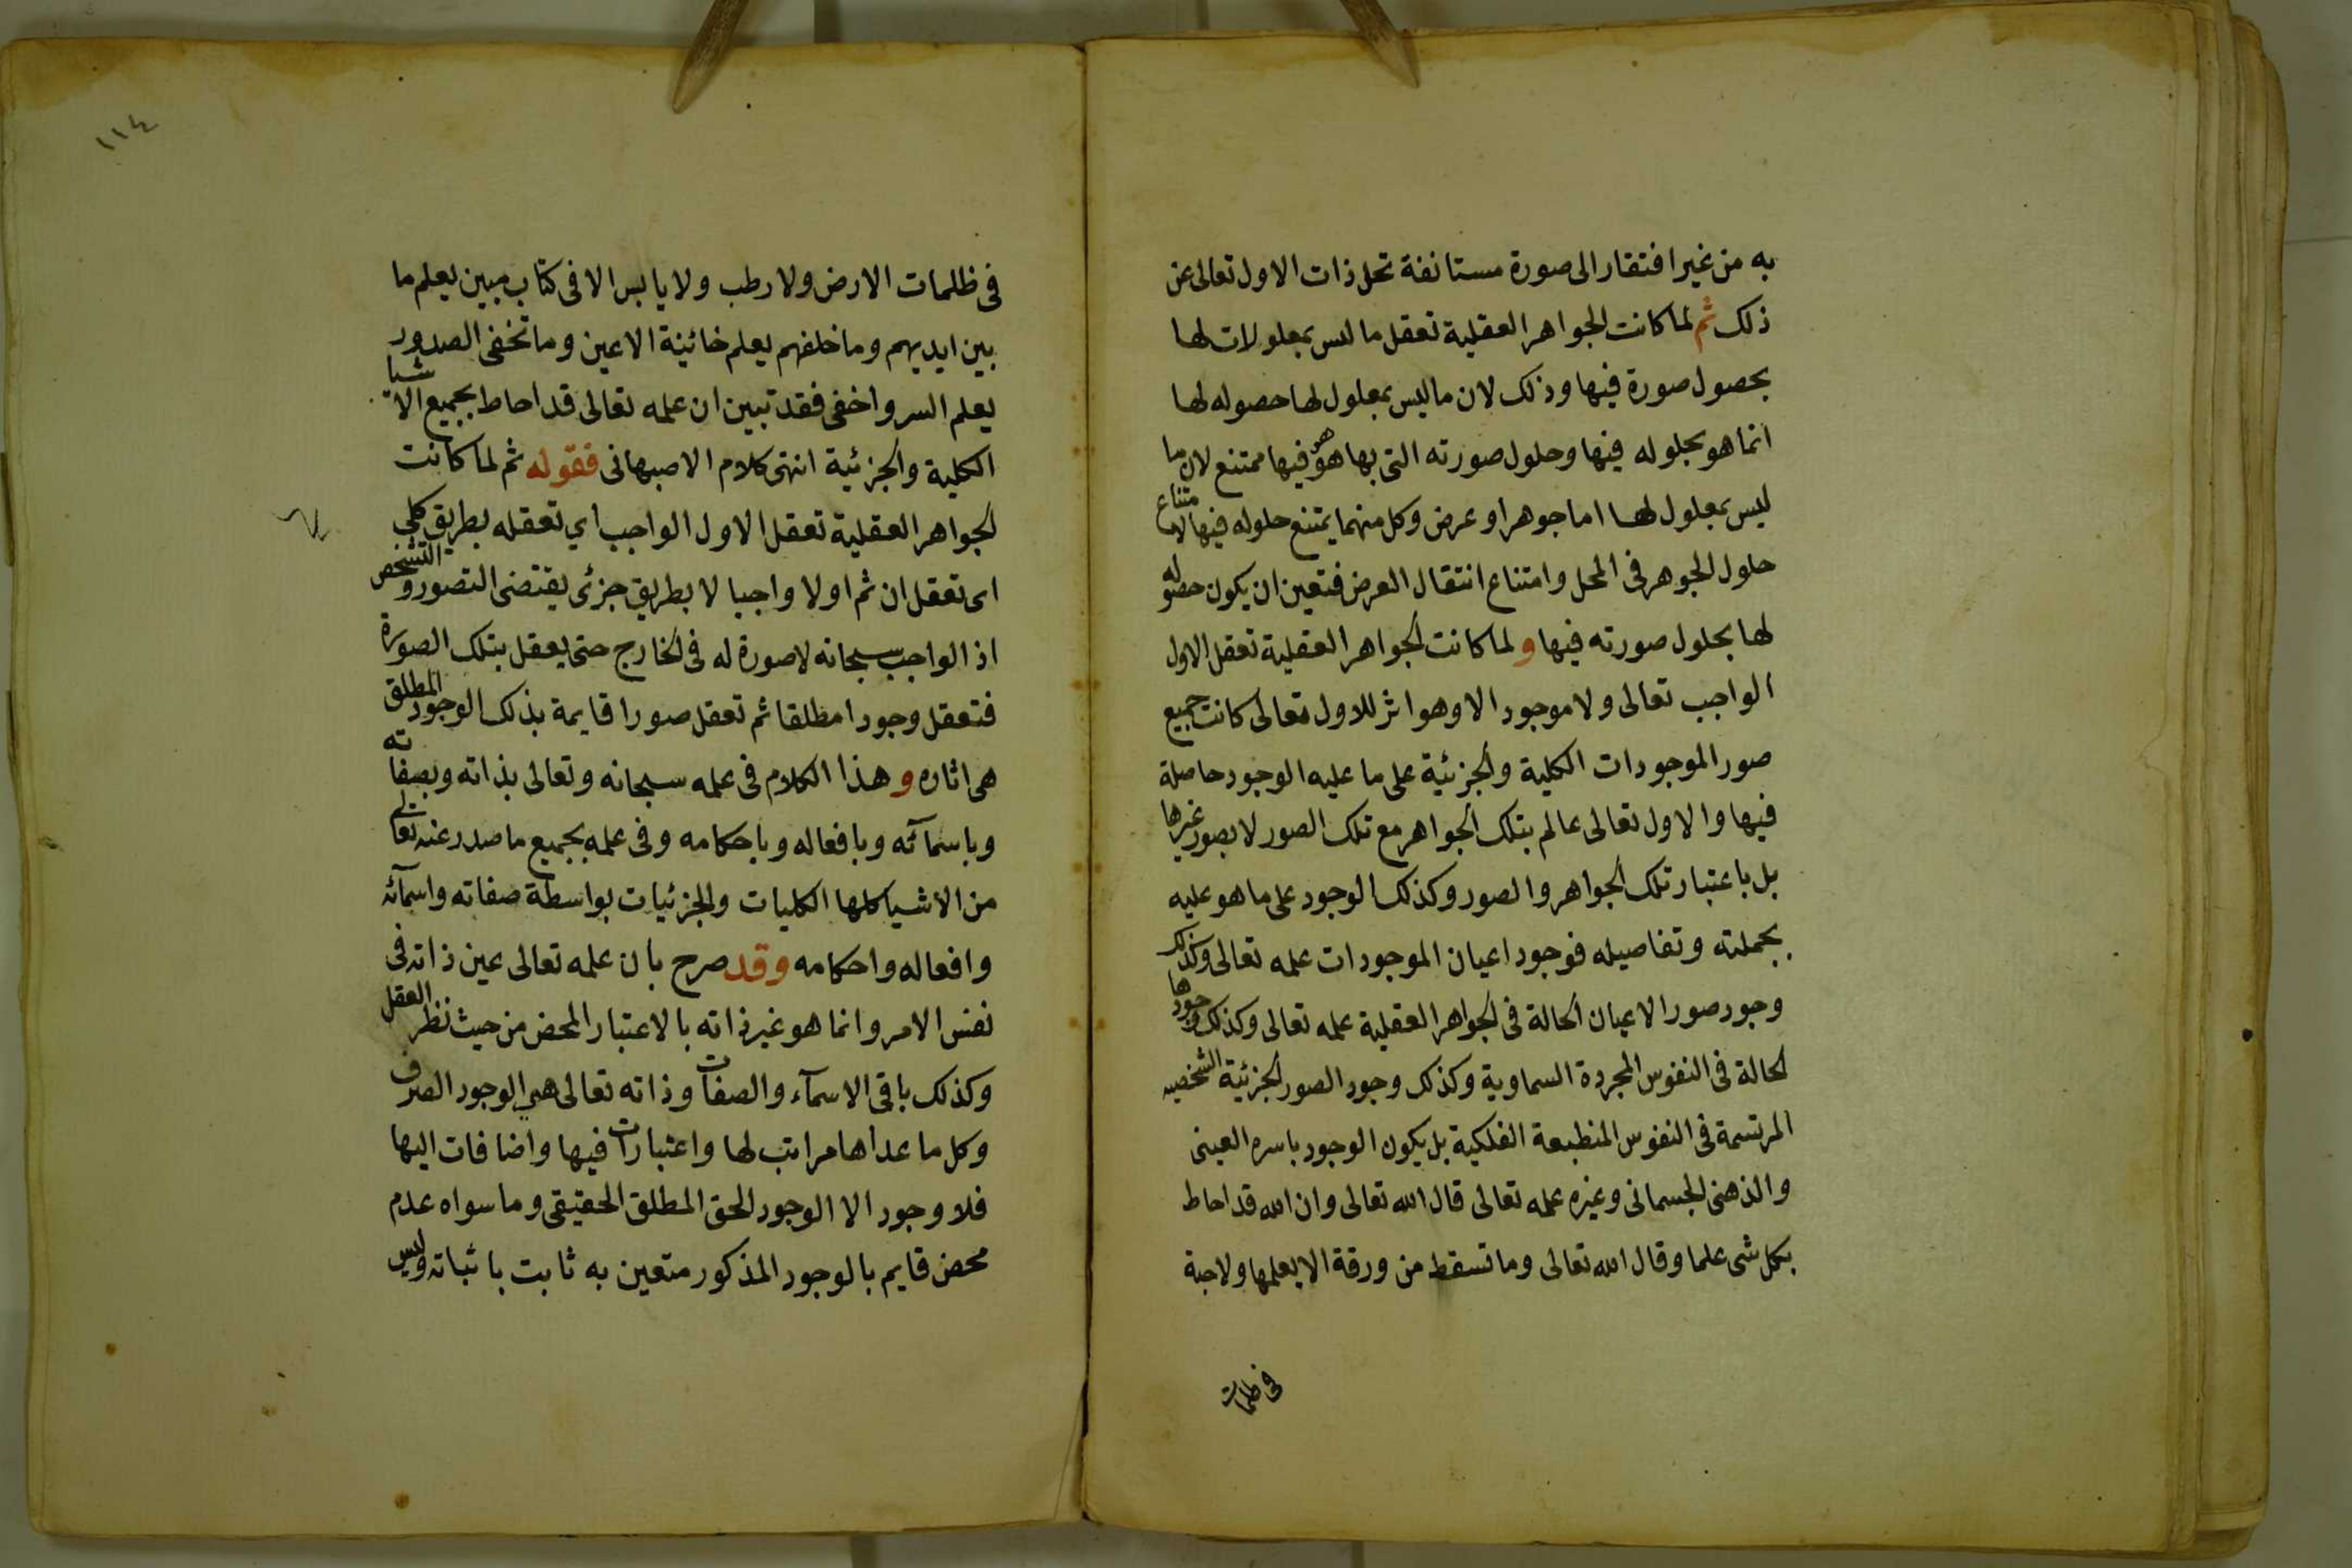 به من غير افتقار الى صورة مستانفة تحل ذات الاول تعالى عن
ذلك ثم لما كانت الجواهر العقلية تعقل ما ليس بمعلولات لها
بحصول صورة فيها وذلك لان ما ليس بمعلول لها حصوله لها
انما هو بحلوله فيها وحلول صورته التى بها هو هو فيها ممتنع لان ما
ليس بمعلول لها اما جوهر او عرض وكل منهما يمتنع حلوله فيها لامتناع
حلول الجوهر فى المحل وامتناع انتقال العرض فتعين ان يكون حصوله
لها بحلول صورته فيها و لما كانت الجواهر العقلية تعقل الاول
الواجب تعالى ولا موجود الا وهو اثر للاول تعالى كانت جميع
صور الموجودات الكلية والجزئية على ما عليه الوجود حاصلة
فيها والاول تعالى عالم بتلك الجواهر مع تلك الصور لا بصور غيرها
بل باعتبار تلك الجواهر والصور وكذلك الوجود على ما هو عليه
بجملته وتفاصيله فوجود اعيان الموجودات علمه تعالى وكذلك
وجود صور الاعيان الحالة فى الجواهر العقلية علمه تعالى وكذلك وجودها
الحالة فى النفوس المجردة السماوية وكذلك وجود الصور الجزئية الشخصيه
المرتسمة فى النفوس المنطبعة الفلكية بل يكون الوجود باسره العينى
والذهنى الجسمانى وغيره علمه تعالى قال الله تعالى وان الله قد احاط
بكل شى علما وقال الله تعالى وما تسقط من ورقة الا يعلمها ولا حبة
فى ظلمات
١١٤
فى ظلمات الارض ولا رطب ولا يابس الا فى كتاب مبين يعلم ما
بين ايديهم وما خلفهم يعلم خائينة الاعين وما تخفى الصدور
يعلم السر واخفى فقد تبين ان علمه تعالى قد احاط بجميع الاشيا
الكلية والجزئية انتهى كلام الاصبهانى فقوله ثم لما كانت
الجواهر العقلية تعقل الاول الواجب اي تعقله بطريق كلي
اى تعقل ان ثم اولا واجبا لا بطريق جزئى يقتضى التصور والتشخص
اذ الواجب سبحانه لا صورة له فى الخارج حتى يعقل بتلك الصورة
فتعقل وجودا مطلقا ثم تعقل صورا قايمة بذلك الوجود المطلق
هى اثاره و هذا الكلام فى علمه سبحانه وتعالى بذاته وبصفاته
وباسمآئه وبافعاله وباحكامه وفى علمه بجميع ما صدر عنه تعالى
من الاشيا كلها الكليات والجزئيات بواسطة صفاته واسمآئه
وافعاله واحكامه وقد صرح بان علمه تعالى عين ذاته فى
نفس الامر وانما هو غير ذاته بالاعتبار المحض من حيث نظر العقل
وكذلك باقى الاسمآء والصفات وذاته تعالى هي الوجود الصرف
وكل ما عداها مراتب لها واعتبارات فيها واضافات اليها
فلا وجود الا الوجود الحق المطلق الحقيقى وما سواه عدم
محض قايم بالوجود المذكور متعين به ثابت باثباته وليس